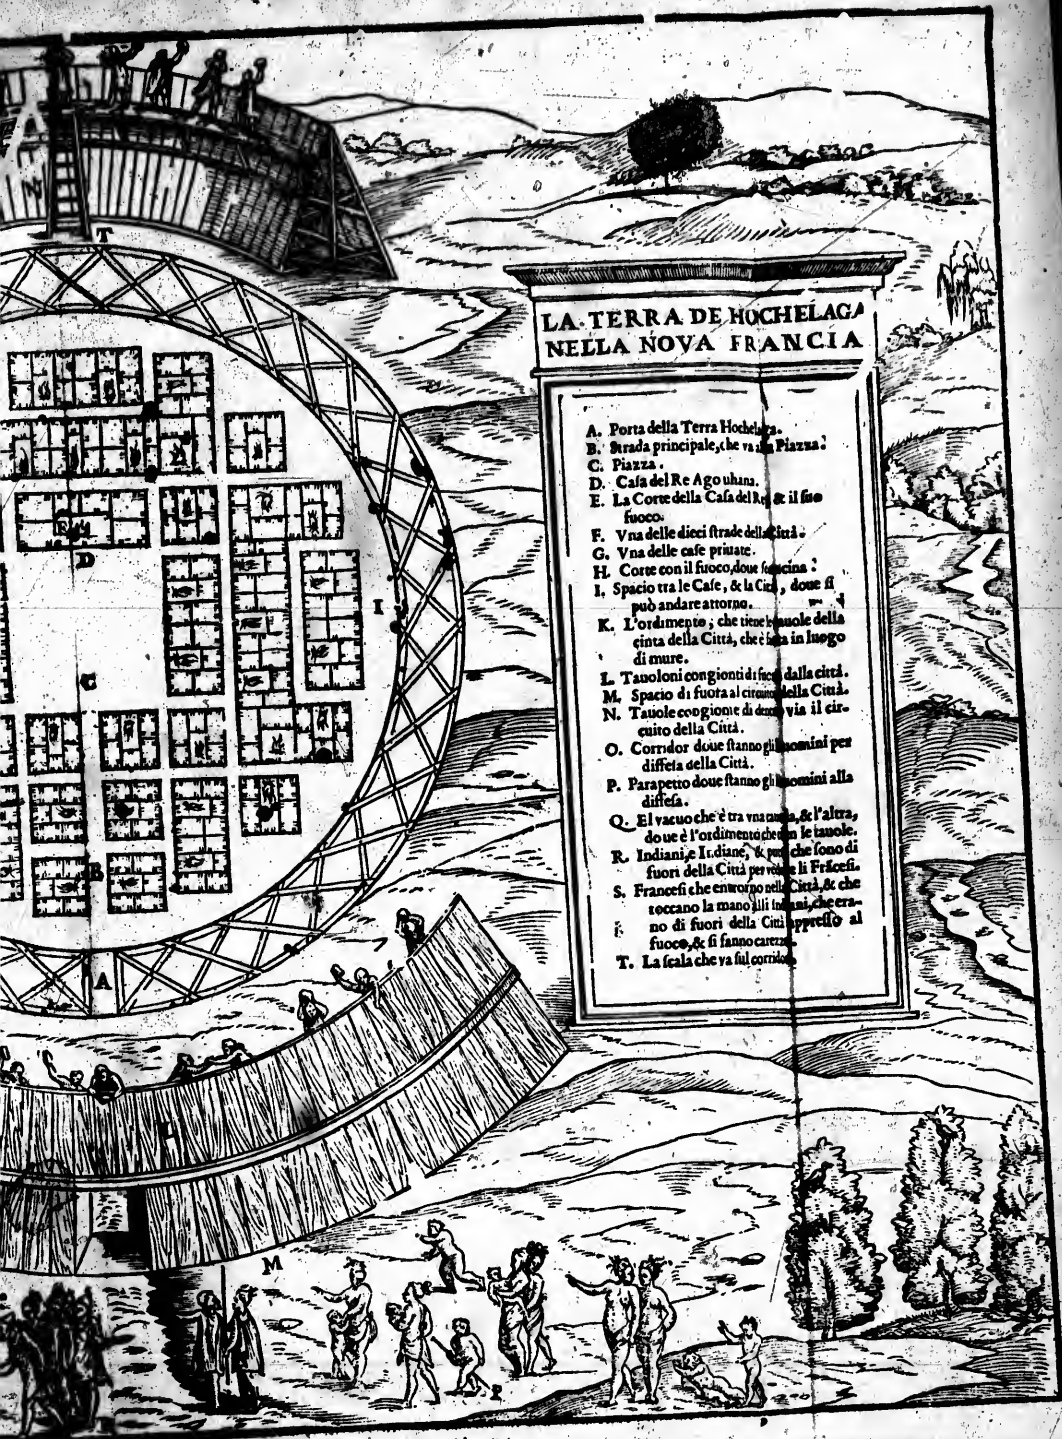 LA TERRA DE HOCHELAGA
NELLA NOVA FRANCIA
A. Porta della Terra Hochelaga.
B. Strada principale, che va Piazza.
C. Piazza.
D. Caſa del Re Agouhana.
E. La Corte della Caſa del Re, & il ſuo
fuoco.
F. Vna delle dieci ſtrade della Città.
G. Vna delle caſe priuate.
H. Corte con il fuoco, doue
I. Spacio tra le Caſe, & la Città, doue ſi
può andare attorno.
K. L'ordimento, che tiene le tauole della
cinta della Città, che è in luogo
di mure.
L. Tauoloni congionti di fuora dalla città.
M. Spacio di fuora al circuito della Città.
N. Tauole congionte di dentro via il cir-
cuito della Città.
O. Corridor doue ſtanno gli huomini per
diffeſa della Città.
P. Parapetto doue ſtanno gli huomini alla
diffeſa.
Q. El vacuo che è tra vna tauola, & l'altra,
doue è l'ordimento le tauole.
R. Indiani, e Indiane, & putti che ſono di
fuori della Città per vedere li Frãceſi.
S. Franceſi che entrorno nella Città, & che
toccano la mano alli Indiani, che era-
no di fuori della Città appreſſo al
fuoco, & ſi fanno carezze.
T. La ſcala che va ſul corridor.
N
T
E
D
I
C
B
A
L
M
R